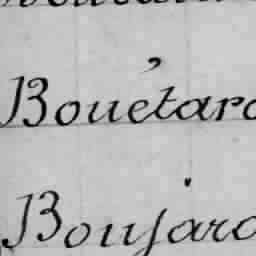 Bouétard
Boujard